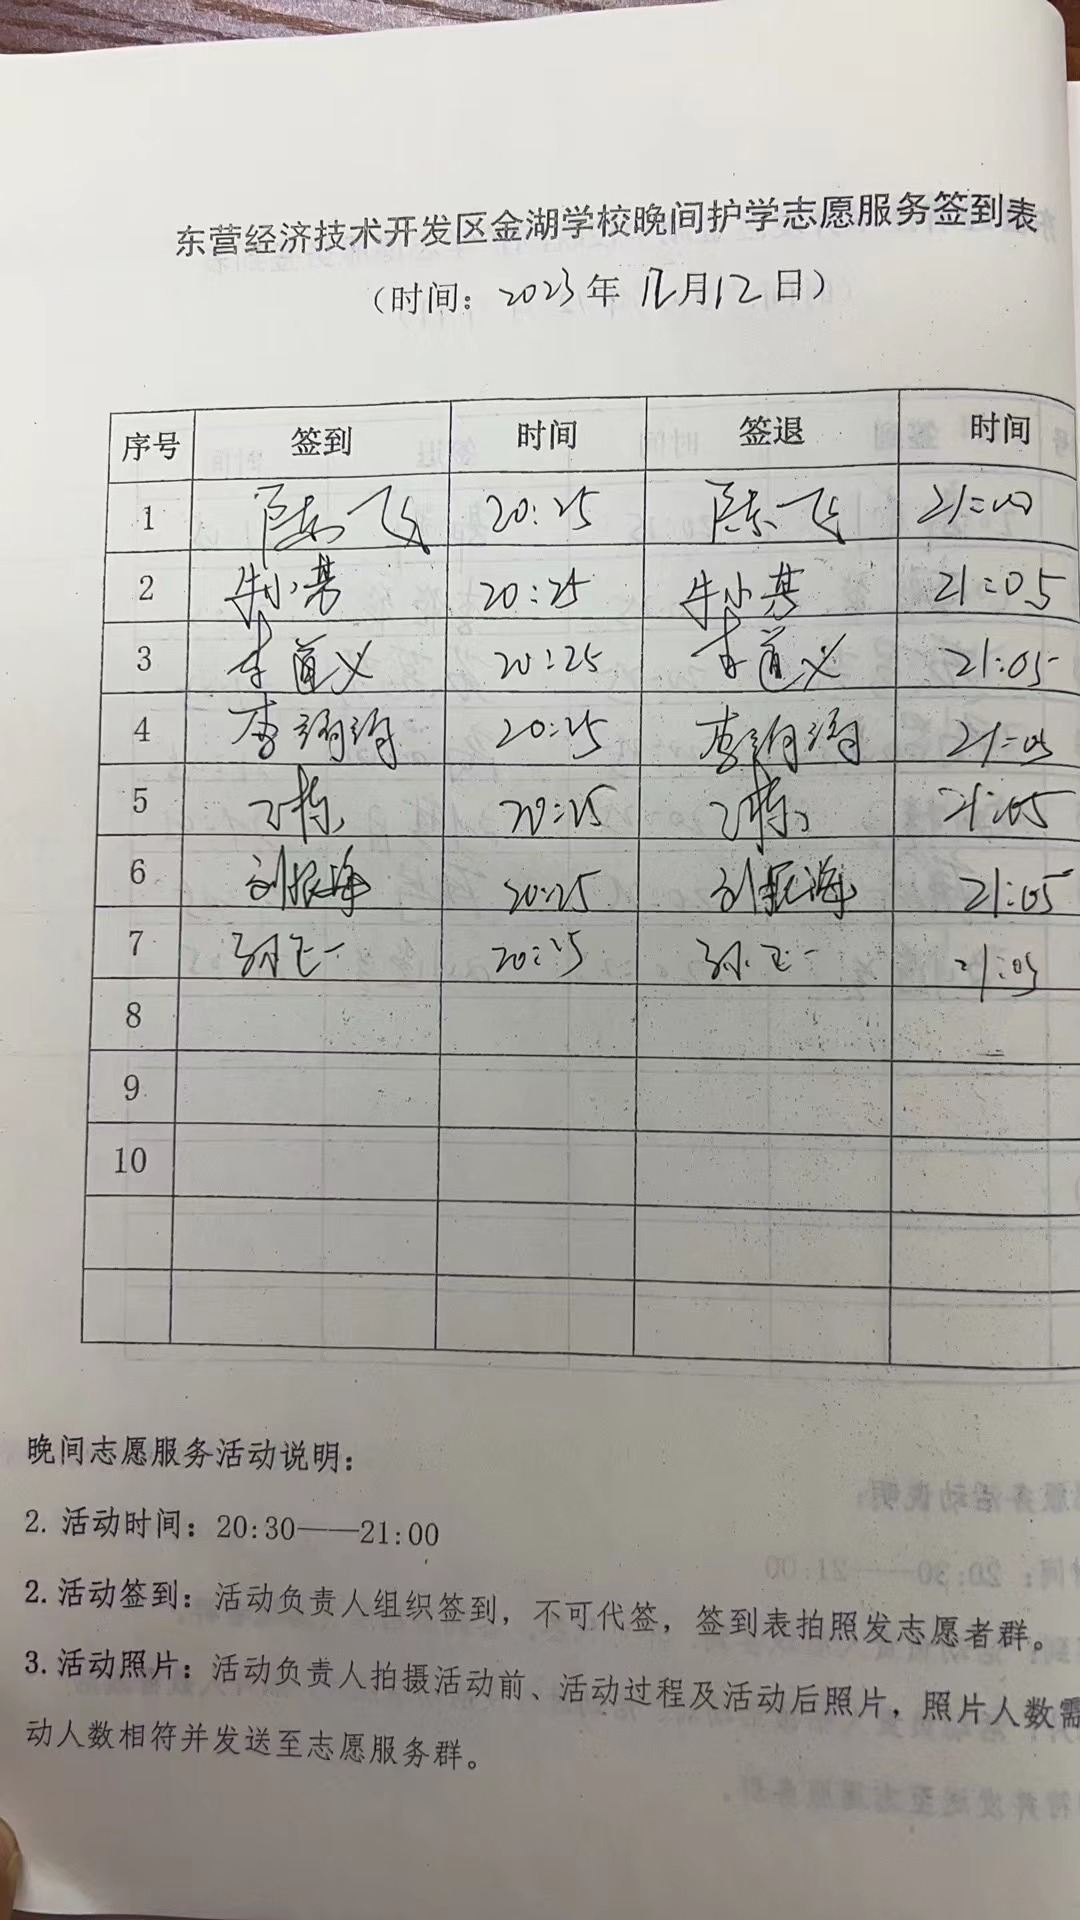 东营经济技术开发区金湖学校晚间护学志愿服务签到表
（时间：2023年12月12日）
序号 签到 时间 签退 时间
1 陈飞 20:25 陈飞 21:00
2 朱小芳 20:25 朱小芳 21:05
3 李道义 20:25 李道义 21:05
4 李海涛 20:25 李海涛 21:05
5 20:25 21:05
6 刘振海 20:25 刘振海 21:05
7 20:25 21:05
8
9
10
晚间志愿服务活动说明：
2. 活动时间：20:30——21:00
2. 活动签到：活动负责人组织签到，不可代签，签到表拍照发志愿者群。
3. 活动照片：活动负责人拍摄活动前、活动过程及活动后照片，照片人数需
动人数相符并发送至志愿服务群。